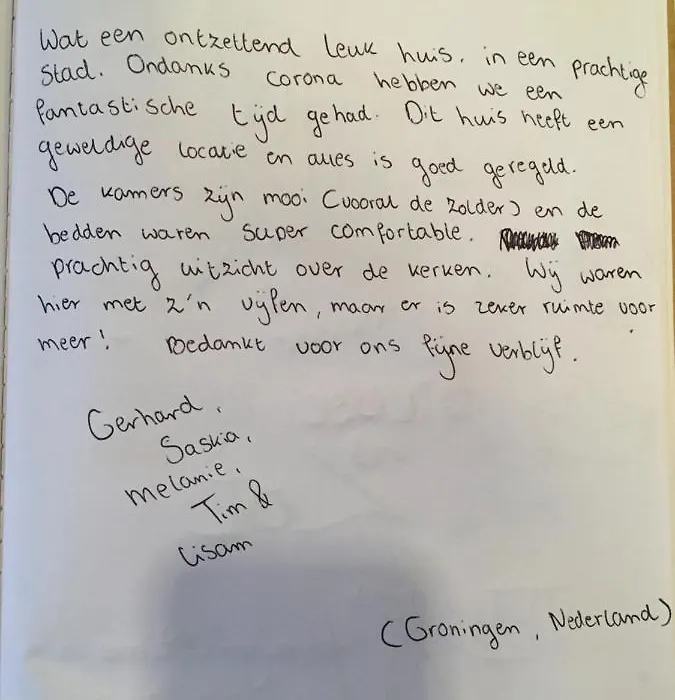 Wat een ontzettend leuk huis. in een prachtige
stad. Ondanks corona hebben we een
fantastische tijd gehad. Dit huis heeft een
geweldige locatie en alles is goed geregeld.
De kamers zijn mooi (vooral de zolder) en de
bedden waren super comfortable.
prachtig uitzicht over de kerken. Wij waren
hier met z'n vijfen, maar er is zeker ruimte voor
meer! Bedankt voor ons fijne verblijf.
Gerhard,
Saskia,
melanie,
Tim &
Lisam
(Groningen, Nederland)